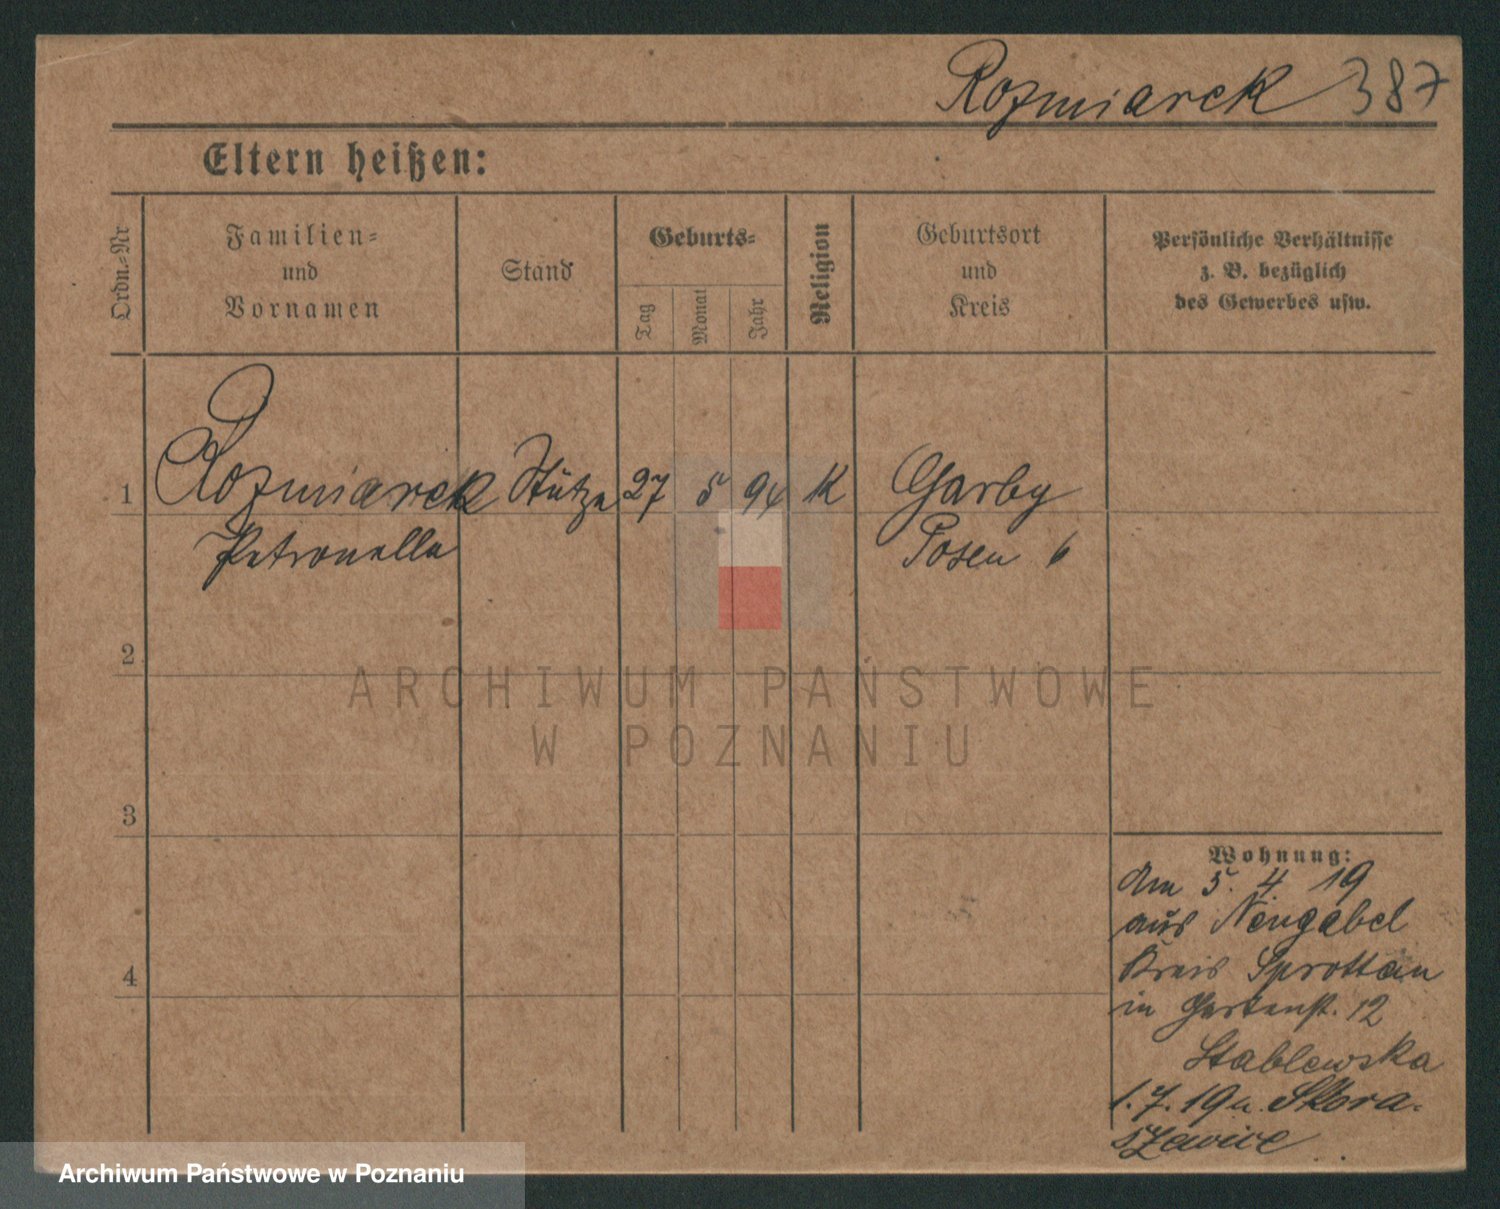 Rozmiarek 387
Eltern heißen:
Ordn.=Nr
Familien=
und
Vornamen
Stand
Geburts=
Tag
Monat
Jahr
Religion
Geburtsort
und
Kreis
Persönliche Verhältnisse
z. B. bezüglich
des Gewerbes usw.
1 Rozmiarek Stütze 27 5 94 K Garby
Petronella Posen
2
3
4
Wohnung:
Am 5. 4. 19
aus Neugabel
Kreis Sprottau
in Gartenst. 12
Stablewska
1. 7. 19 n. Skora-
szewice
ARCHIWUM PAŃSTWOWE
W POZNANIU
Archiwum Państwowe w Poznaniu